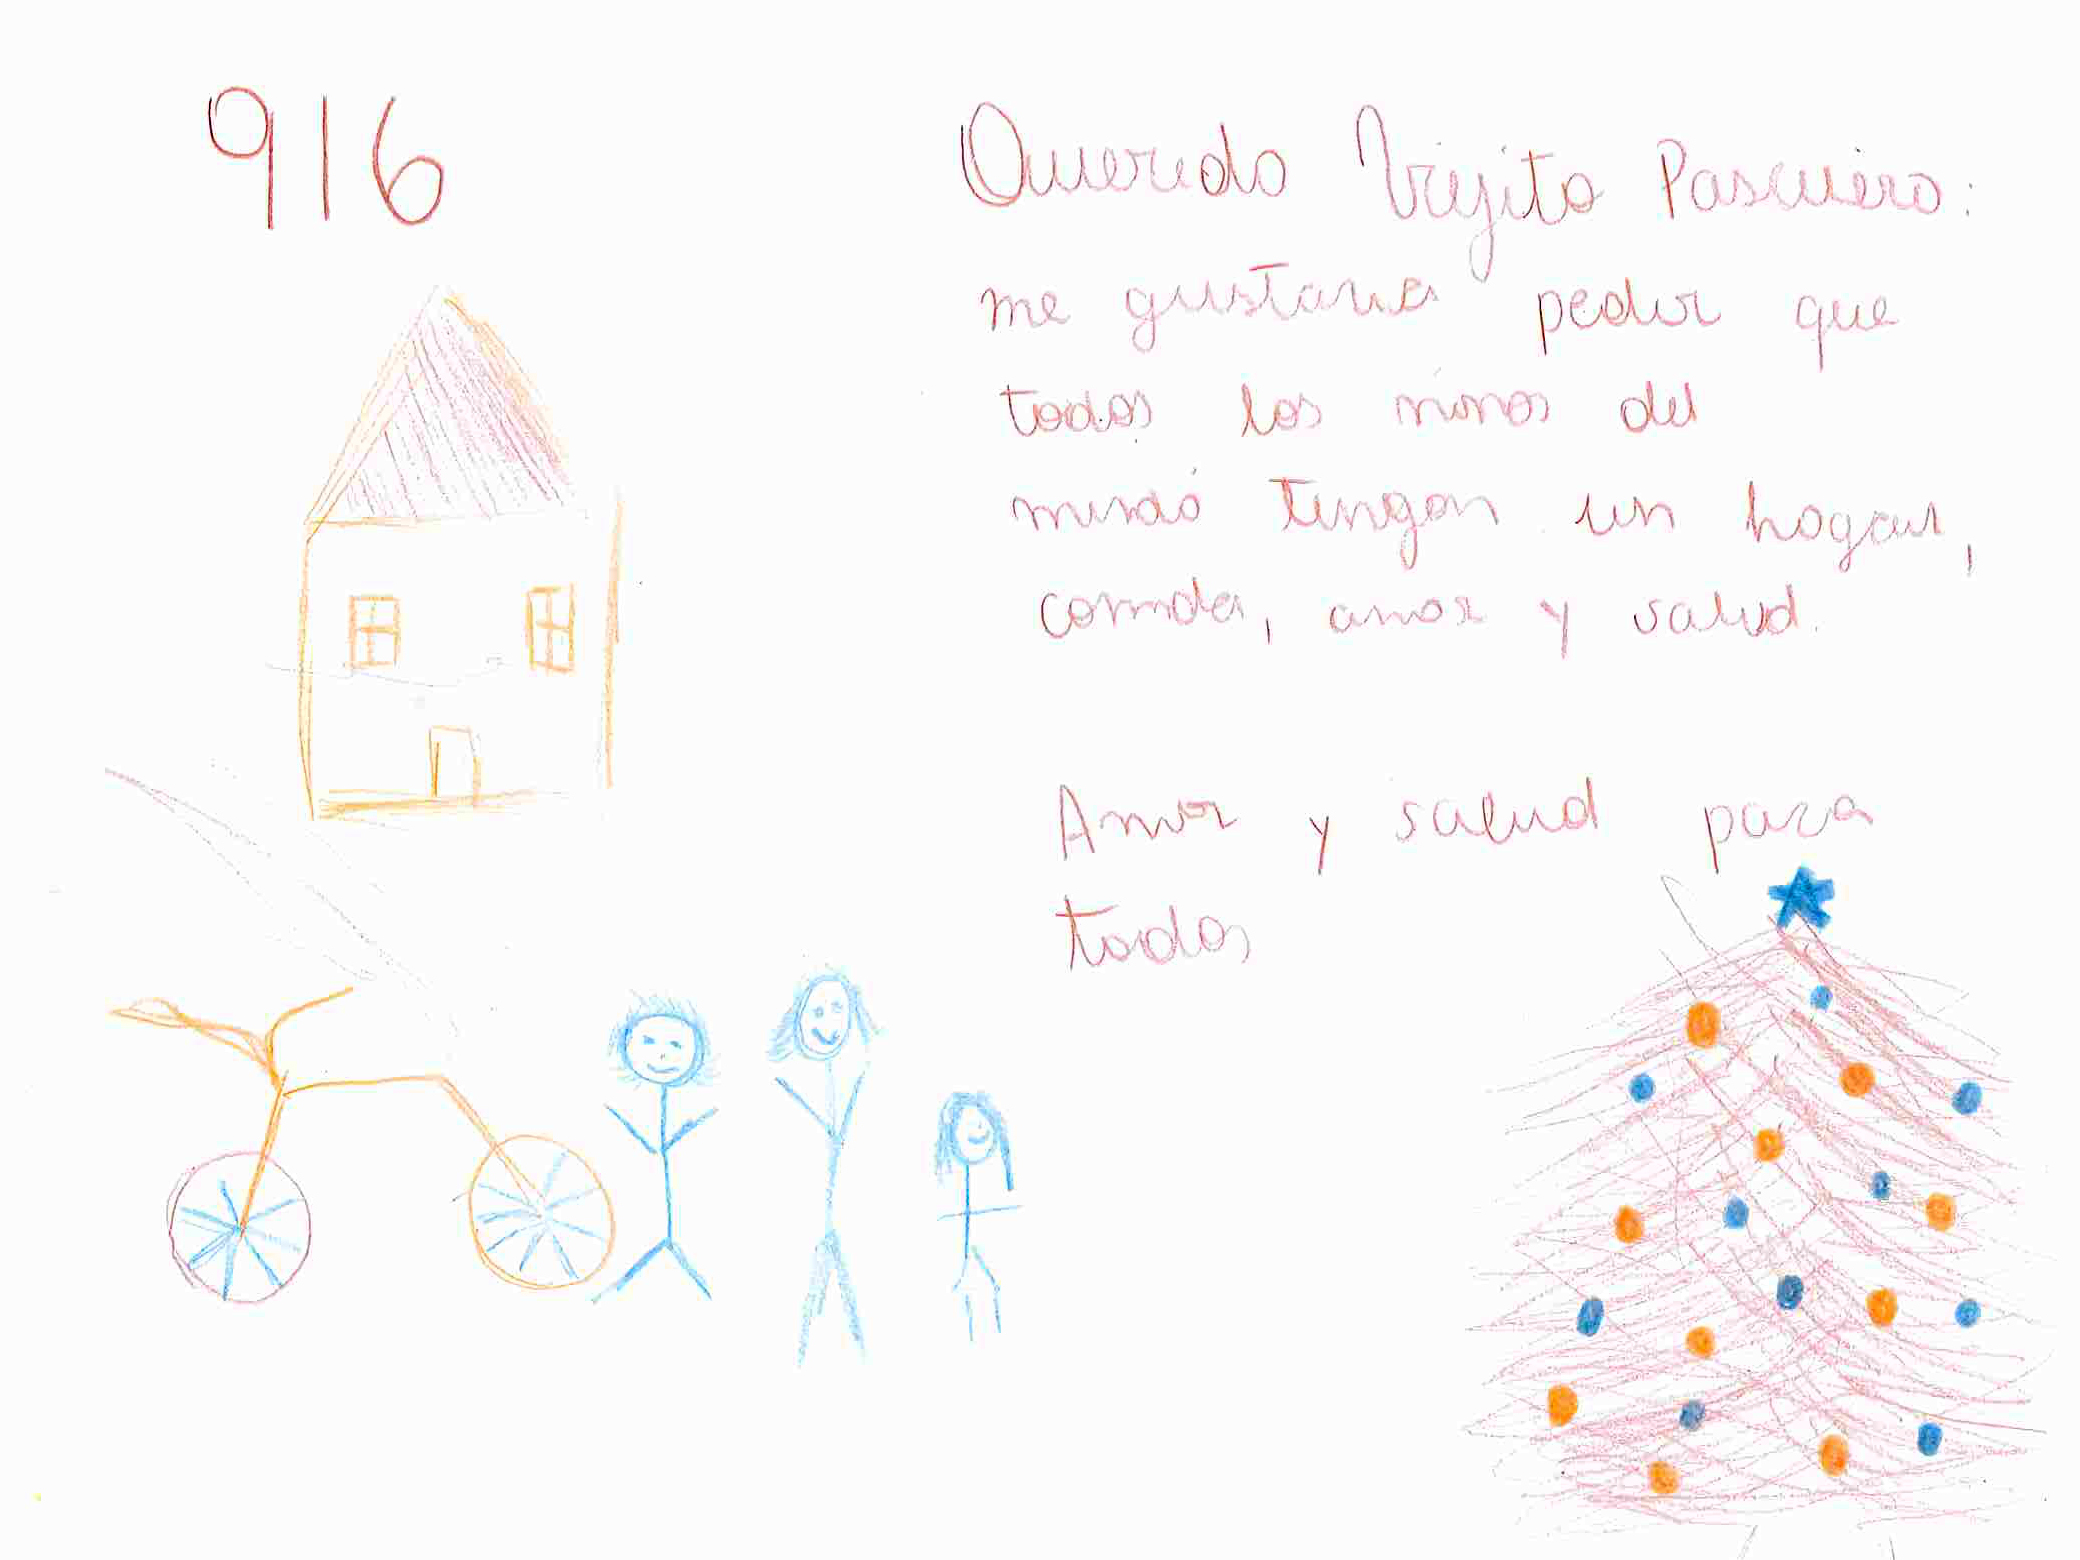 916
Querido Viejito Pascuero:
me gustaria pedir que
todos los ninos del
mundo tengan un hogar,
comida, amor y salud.
Amor y salud para
todos